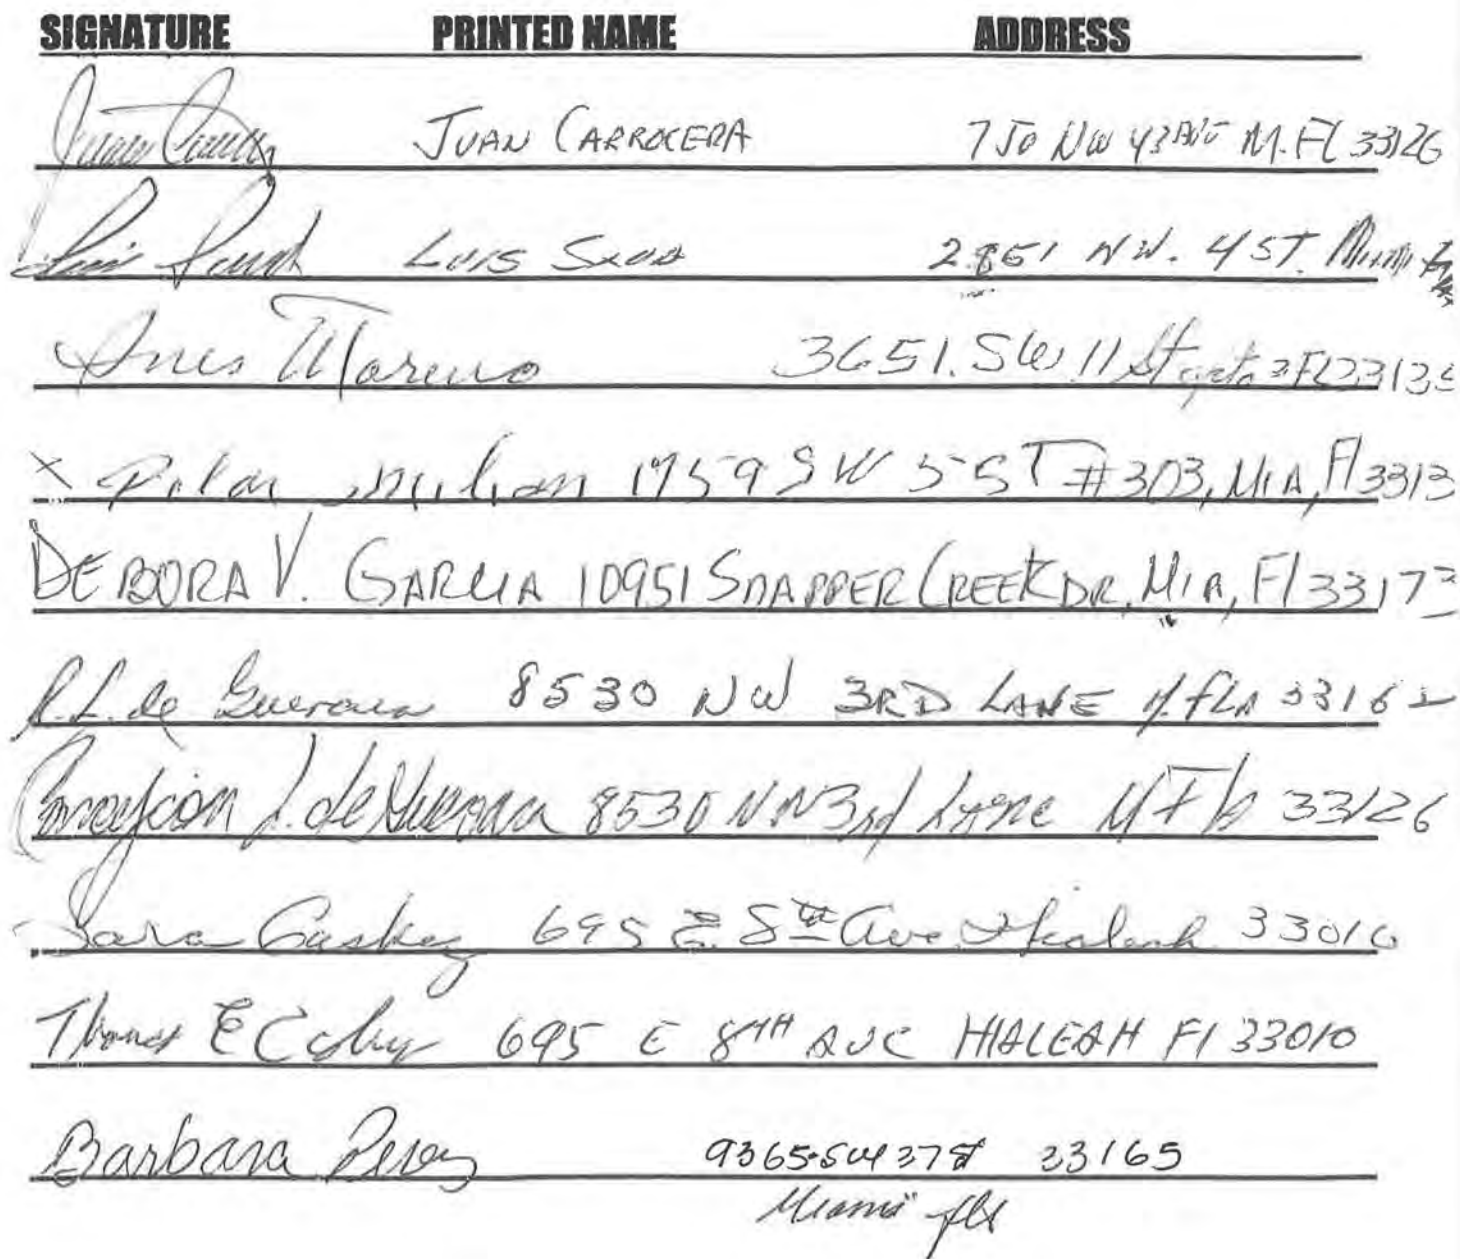 SIGNATURE PRINTED NAME ADDRESS
JUAN CARROCERA 750 NW 43 AVE M. FL 33126
LUIS 2851 NW. 4 ST. Miami
Ines Moreno 3651. SW 11 St FL 3313
X Pilar 1759 SW 5 ST #303, MIA, Fl 3313
DEBORA V. GARCIA 10951 SNAPPER CREEK DR, MIA, Fl 33173
R.L. de Guevara 8530 NW 3RD LANE M. FLA 3316
Concepcion L. de Guevara 8530 NW 3rd Lane M Fla 33126
Sara 695 E. 8th Ave Hialeah 33010
Thomas E 695 E 8TH AVE HIALEAH Fl 33010
Barbara Perez 9365 SW 37 St 33165
Miami fla